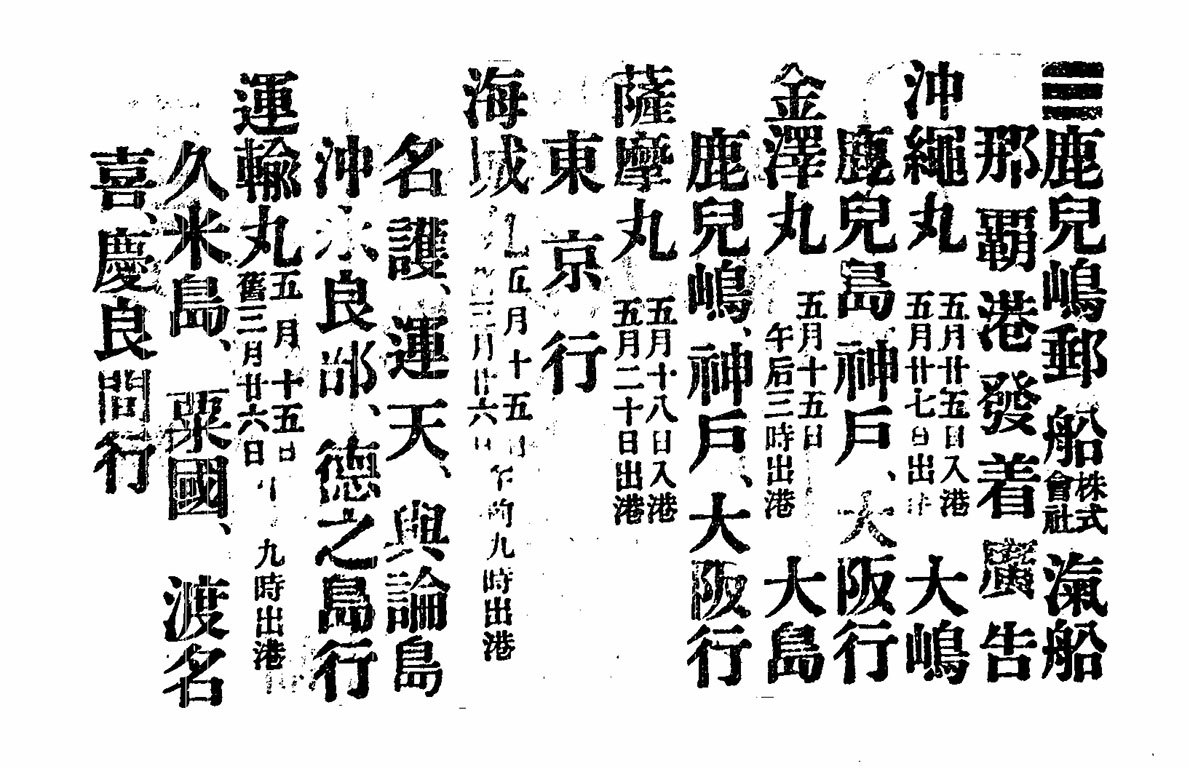 鹿兒嶋郵船株式會社滊船
那覇港發着廣告
沖繩丸 五月廿五日入港 五月廿七日出港 大嶋
鹿兒島、神戶、大阪行
金澤丸 五月十五日 午后三時出港 大島
鹿兒嶋、神戶、大阪行
薩摩丸 五月十八日入港 五月二十日出港
東京行
海城丸 五月十五日 三月廿六日 午前九時出港
名護、運天、與論島
沖永良部、德之島行
運輸丸 五月十五日 舊三月廿六日 九時出港
久米島、粟國、渡名
喜、慶良間行